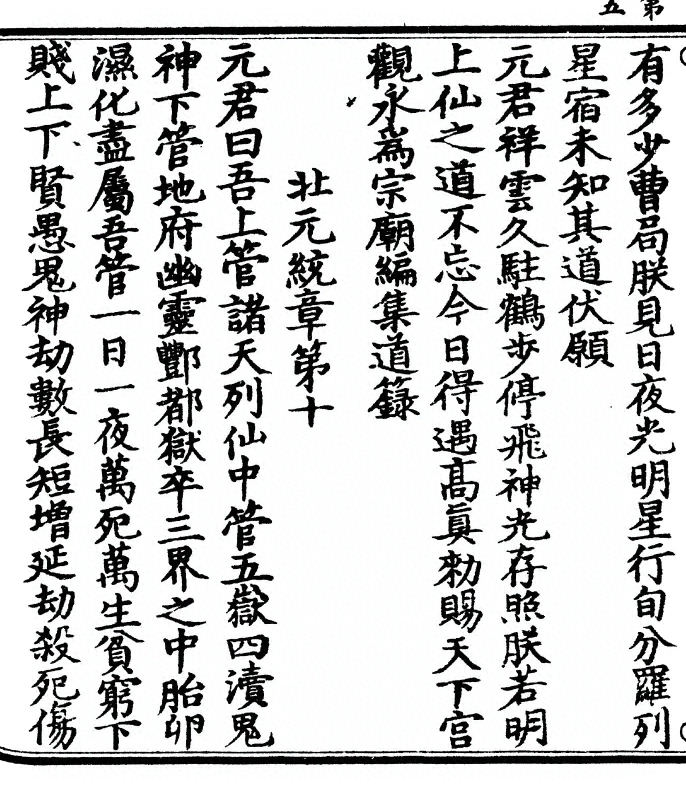 第五
有多少曹局朕見日夜光明星行旬分羅列
星宿未知其道伏願
元君祥雲久駐鶴步停飛神光存照朕若明
上仙之道不忘今日得遇高真勑賜天下宮
觀永為宗廟編集道籙
北元統章第十
元君曰吾上管諸天列仙中管五嶽四瀆鬼
神下管地府幽靈酆都獄卒三界之中胎卵
濕化盡屬吾管一日一夜萬死萬生貧窮下
賤上下賢愚鬼神劫數長短增延劫殺死傷